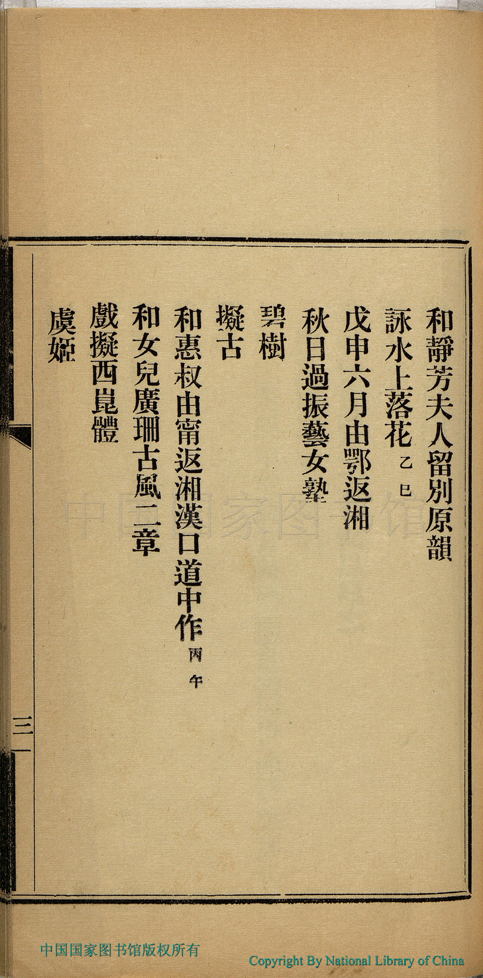 和靜芳夫人留別原韻
詠水上落花 乙巳
戊申六月由鄂返湘
秋日過振藝女塾
碧樹
擬古
和惠叔由甯返湘漢口道中作 丙午
和女兒廣珊古風二章
戲擬西崑體
虞姬
三
中国国家图书馆
中国国家图书馆版权所有
Copyright By National Library of China